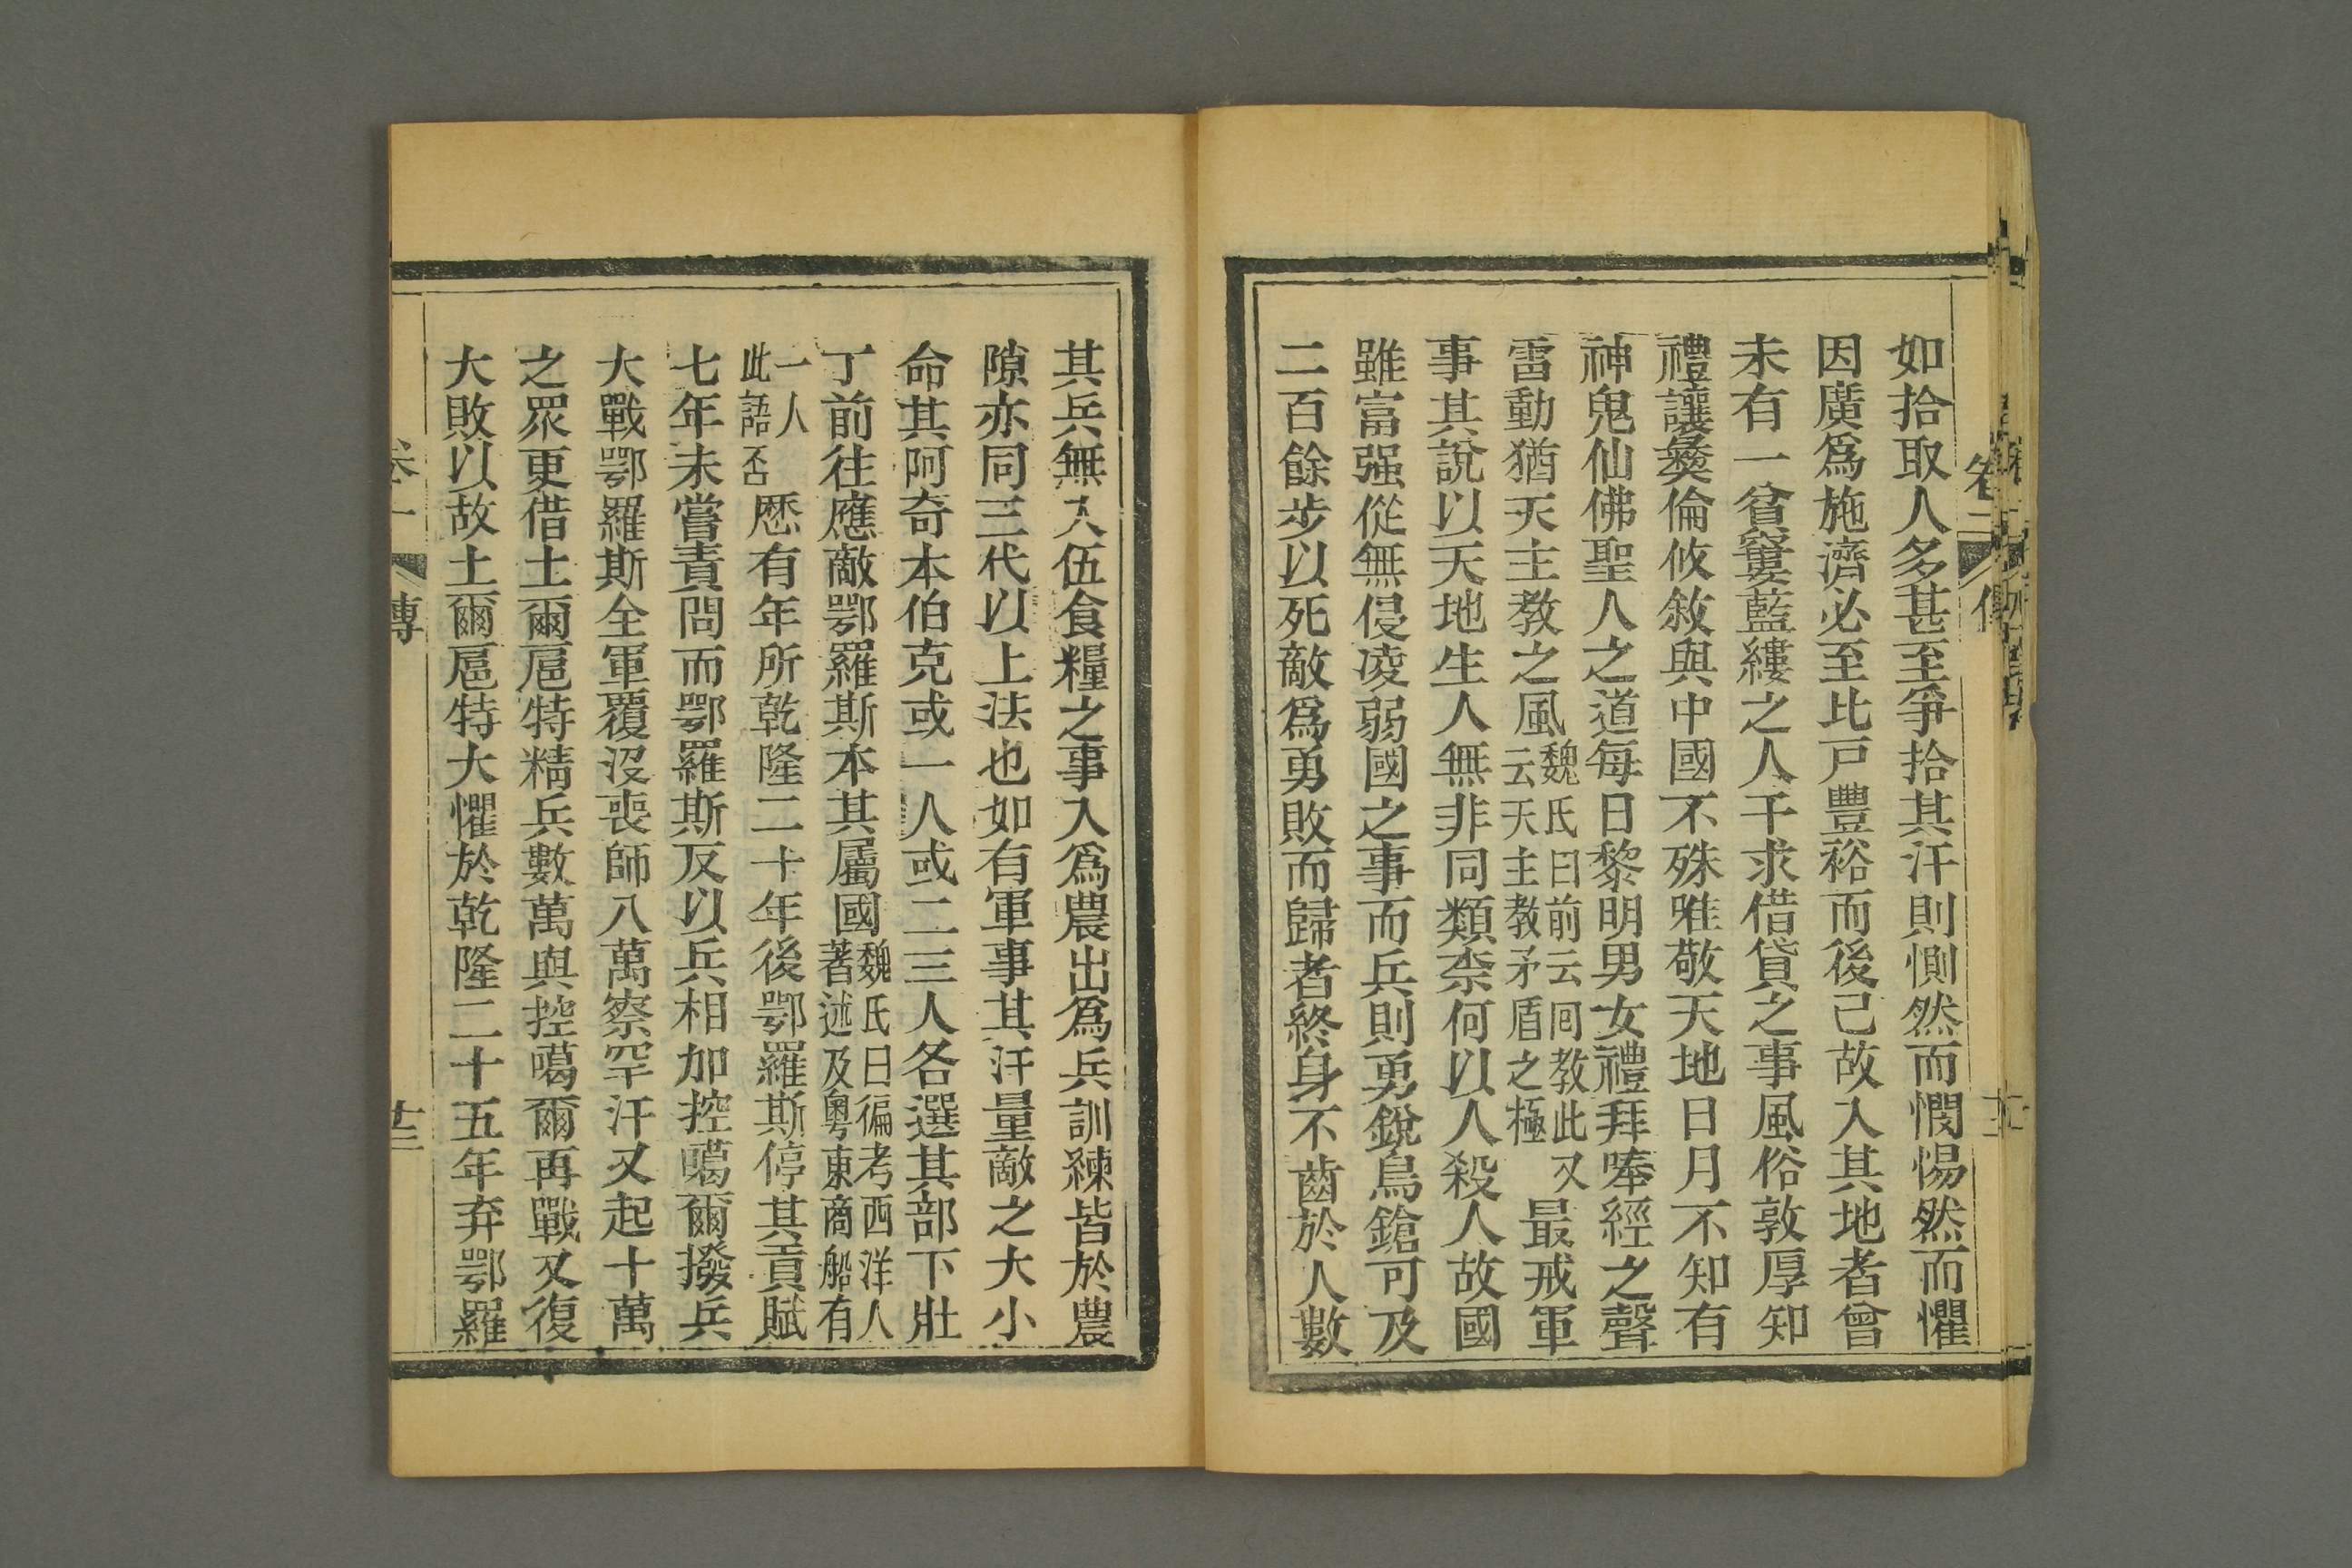 如拾取人多甚至爭拾其汗則惻然而憫惕然而懼
因廣爲施濟必至比戸豐裕而後己故入其地者曾
未有一貧窶藍縷之人干求借貸之事風俗敦厚知
禮讓彜倫攸敘與中國不殊雅敬天地日月不知有
神鬼仙佛聖人之道每日黎明男女禮拜唪經之聲
雷動猶天主教之風魏氏曰前云回教此又云天主教矛盾之極最戒軍
事其說以天地生人無非同類柰何以人殺人故國
雖富强從無侵凌弱國之事而兵則勇銳鳥鎗可及
二百餘步以死敵爲勇敗而歸者終身不齒於人數
卷二
其兵無入伍食糧之事入爲農出爲兵訓練皆於農
隙亦同三代以上法也如有軍事其汗量敵之大小
命其阿奇本伯克或一人或二三人各選其部下壯
丁前往應敵鄂羅斯本其屬國魏氏曰徧考西洋人著述及粵東商船有
一人此語否歷有年所乾隆二十年後鄂羅斯停其貢賦
七年未嘗責問而鄂羅斯反以兵相加控噶爾撥兵
大戰鄂羅斯全軍覆沒喪師八萬察罕汗又起十萬
之眾更借土爾扈特精兵數萬與控噶爾再戰又復
大敗以故土爾扈特大懼於乾隆二十五年弃鄂羅
傳